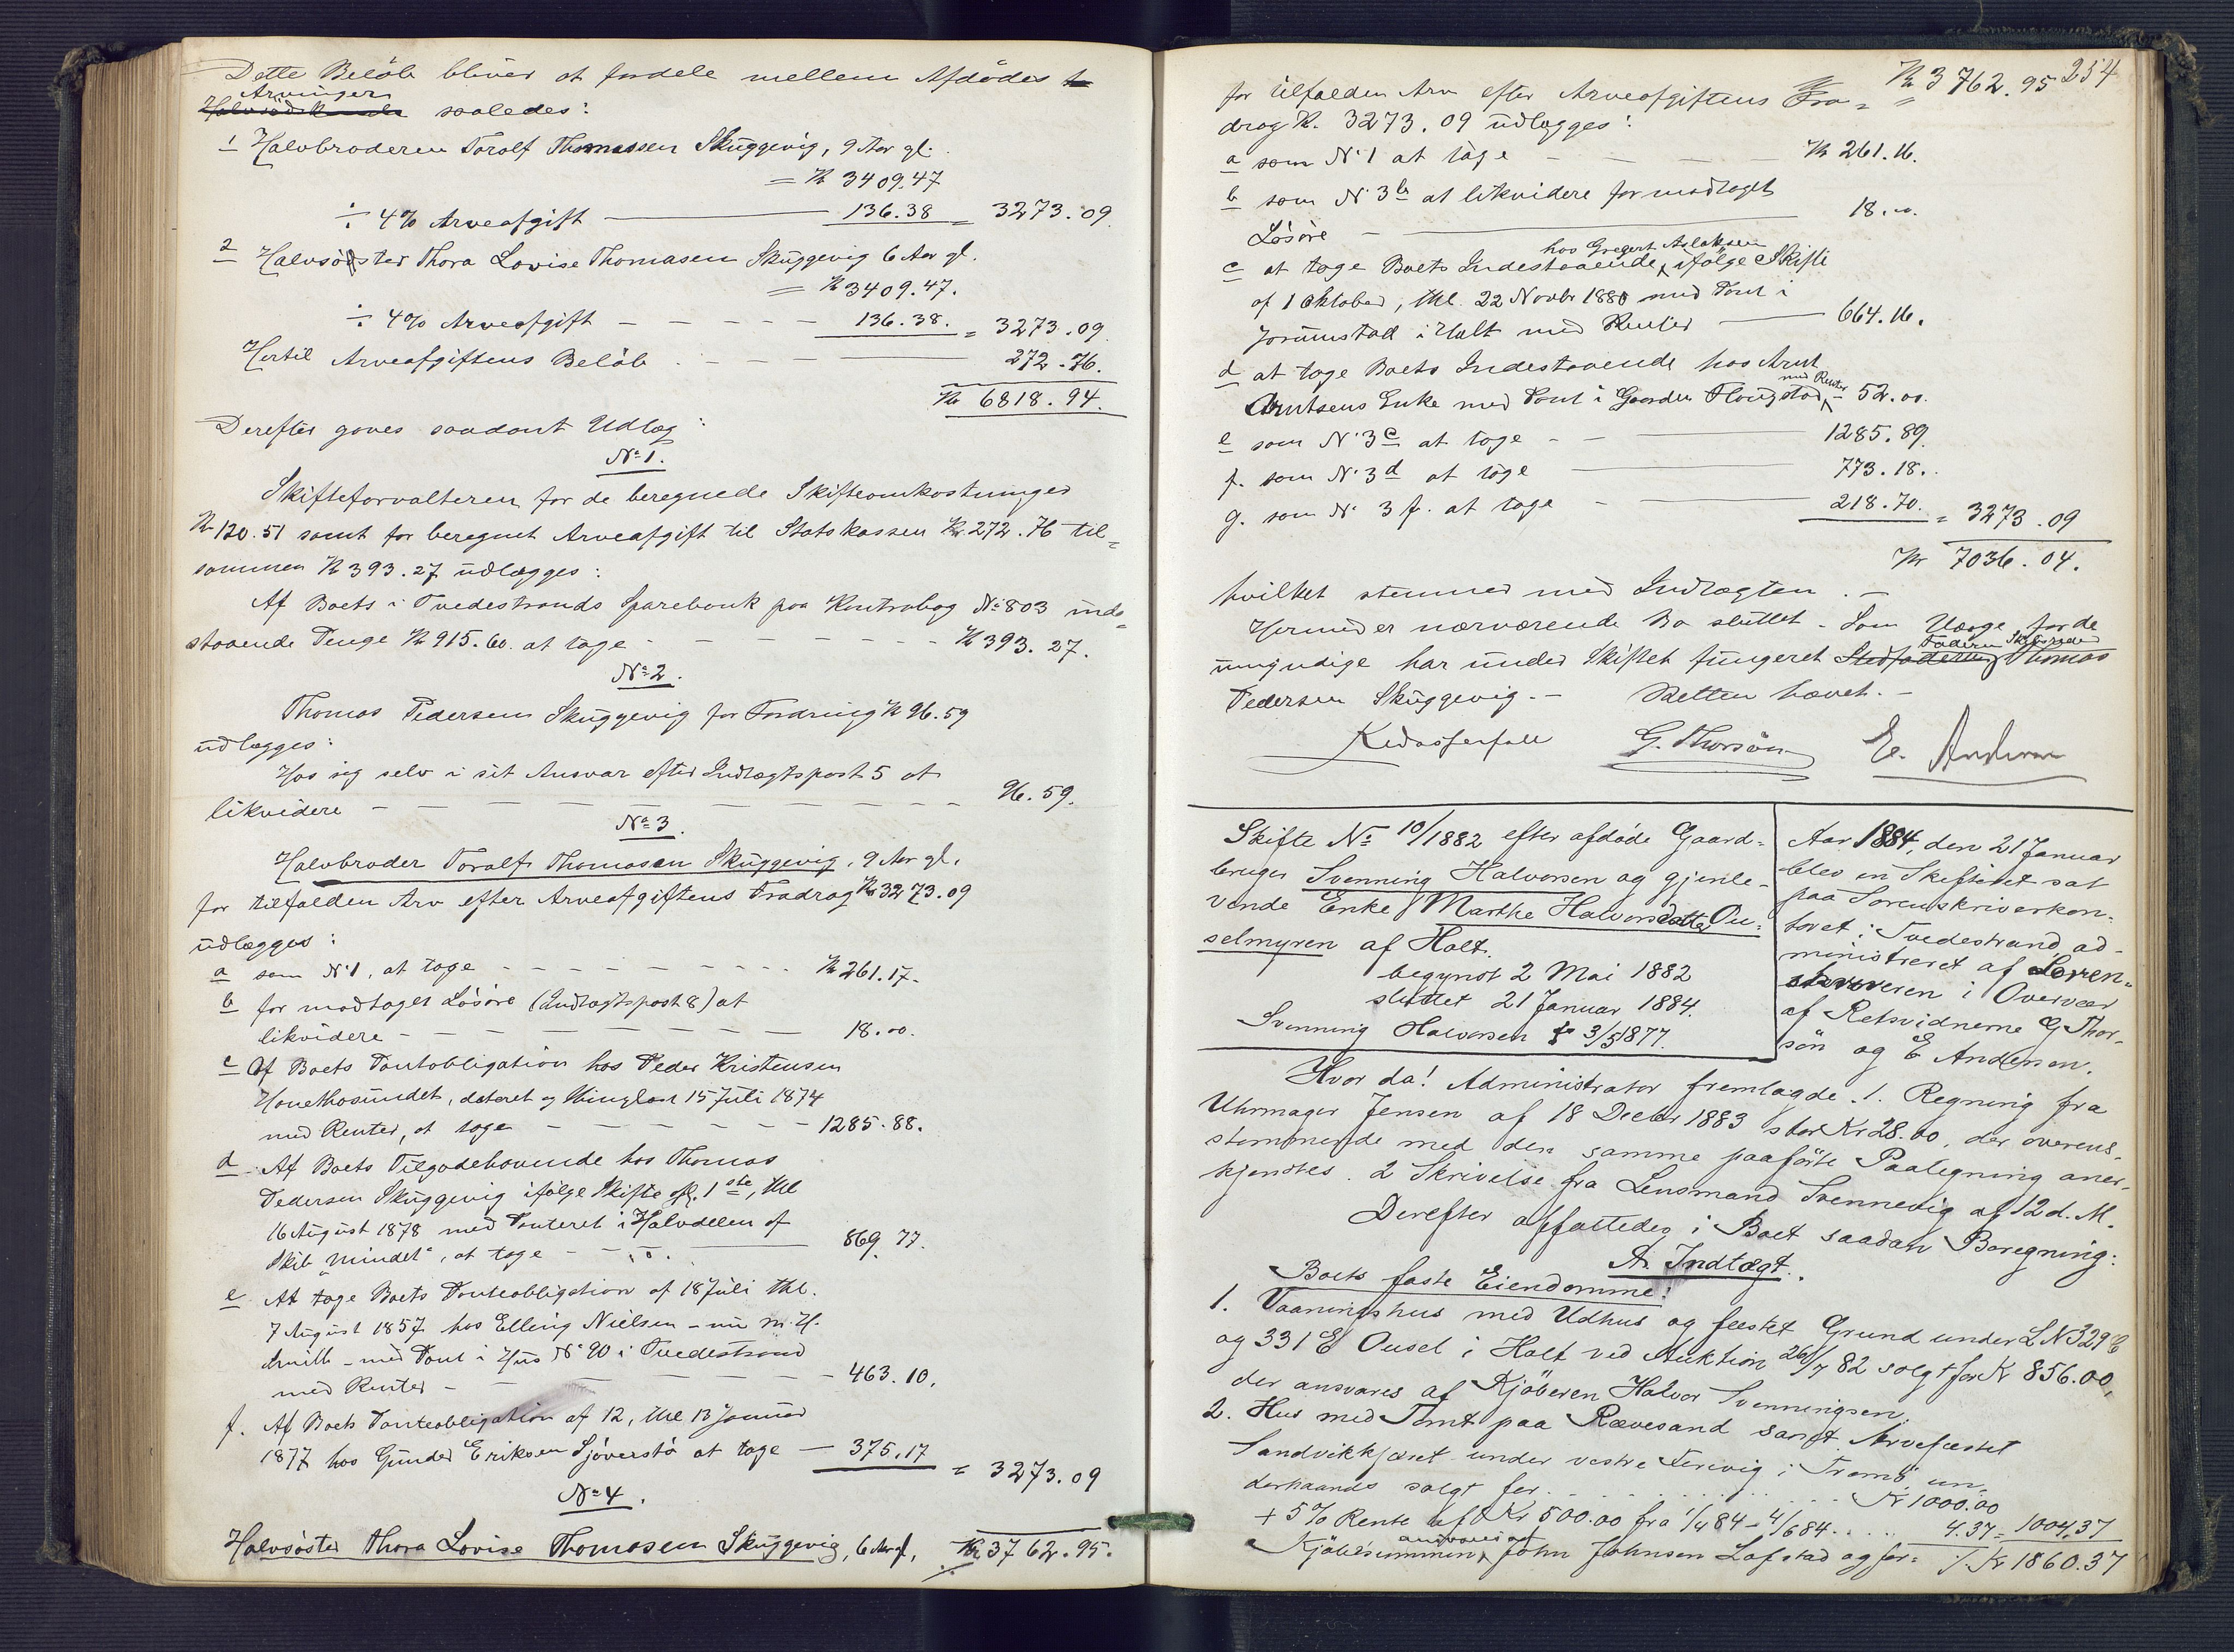 Dette Beløb bliver at fordele mellem Afdødes
Arvinger
Halvsødskende saaledes:
1 Halvbroderen Torolf Thomassen Skuggevig, 9 Aar gl.
= Kr 3409.47
÷ 4% Arveafgift — 136.38 = 3273.09.
2 Halvsøster Thora Lovise Thomasen Skuggevig 6 Aar gl.
= Kr 3409.47.
÷ 4% Arveafgift - - - - 136.38. = 3273.09.
Hertil Arveafgiftens Beløb - - 272.76.
Kr 6818.94.
Derefter gøres saadant Udlæg:
No 1.
Skifteforvalteren for de beregnede Skifteomkostninger
Kr 120.51 samt for beregnet Arveafgift til Statskassen Kr. 272.76 til=
sammen Kr 393.27 udlægges:
Af Boets i Tvedestrands Sparebank paa Kontrabog No 803 inde=
staaende Penge Kr 915.60. at tage - - - - - - Kr 393.27.
No 2.
Thomas Pedersen Skuggevig for Fordring Kr 96.59
udlægges:
Hos sig selv i sit Ansvar efter Indtægtspost 5 at
likvidere - - - - - - - - - - 96.59.
No 3.
Halvbroder Toralf Thomasen Skuggevig, 9 Aar gl.
for tilfalden Arv efter Arveafgiftens Fradrag Kr 3273.09
udlægges:
a som No 1, at tage - - - - - - - - Kr 261.17.
b for modtaget Løsøre (Indtægtspost 8) at
likvidere - - - - - - - - 18.00.
c Af Boets Pantobligation hos Peder Kristensen
dateret og thinglæst 15 Juli 1874
med Renter, at tage - - - - - - 1285.88.
d Af Boets Tilgodehavende hos Thomas
Pedersen Skuggevig ifølge Skifte afsl. 1ste, thl
16 August 1878 med Panteret i Halvdelen af
Skib "Mindet", at tage - - - 869.77.
e At tage Boets Panteobligation af 18 Juli thl.
7 August 1857 hos Elling Nielsen - nu
- med Pant i Hus No 90 i Tvedestrand
med Renter - - - - - - 463.10.
f. Af Boets Panteobligation af 12, thl. 13 Januar
1877 hos Gunder Eriksen Sjøverstø at tage — 375.17
= 3273.09
No 4.
Halvsøster Thora Lovise Thomasen Skuggevig, 6 Aar gl., Kr 3762.95.
254
Kr 3762.95
for tilfalden Arv efter Arveafgiftens Fra=
drag K. 3273.09 udlægges:
a som No 1 at tage - - - - Kr 261.16.
b som No 3 b at likvidere for modtaget
Løsøre - 18.00.
hos Gregert Aslaksen
c at tage Boets Indestaaende ifølge Skifte
af 1 Oktober, thl. 22 Novbr 1880 med Pant i
Jorumstad i Holt med Renter — 664.16.
d at tage Boets Indestaaende hos Arnt
med Renter
Arntsens Enke med Pant i Gaarden Flougstad, - 52.00.
e som No 3 c at tage - - 1285.89.
f. som No 3 d at tage — 773.18.
g. som No 3 f. at tage - 218.70. = 3273.09
Kr 7036.04.
hvilket stemmer med Indtægten. -
Hermed er nærværende Bo sluttet. - Som Værge for de
Faderen Skibsreder
umyndige har under Skiftet fungeret Stedfaderen Thomas
Pedersen Skuggevig. - Retten hævet. -
G. Thorsøn E. Andersen
Skifte No 10/1882 efter afdøde Gaard-
bruger Svenning Halvorsen og gjenle-
vende Enke Marthe Halvorsdatter Ou-
selmyren af Holt.
begyndt 2 Mai 1882
sluttet 21 Januar 1884.
Svenning Halvorsen † 3/5 1877.
Aar 1884, den 21 Januar
blev en Skifteret sat
paa Sorenskriverkon-
toret i Tvedestrand, ad-
ministreret af Soren-
skriveren i Overvær
af Retsvidnerne G Thor-
søn og E Andersen.
Hvor da! Administrator fremlagde. 1. Regning fra
Uhrmager Jensen af 18 Decbr 1883 stor Kr 28.00, der overens-
stemmende med den samme paaførte Paategning aner-
kjendtes. 2 Skrivelse fra Lensmand Svennevig af 12 d. M.
Derefter affattedes i Boet saadan Beregning:
A. Indtægt.
Boets faste Eiendomme:
1. Vaaningshus med Udhus og fæstet Grund under L No 329 b
og 331 b Ousel i Holt ved Auktion 26/7 82 solgt for Kr 856.00,
der ansvares af Kjøberen Halvor Svenningsen.
2. Hus med Tomt paa Rævesand samt Arvefæstet
Sandvikkjæret under vestre Færevig i Tromø un-
derhaands solgt for . . . . . . Kr 1000.00
+ 5% Rente af Kr 500.00 fra 1/4 84 - 4/6 84 . . . . 4.37 = 1004.37
ansvares af
Kjøbesummen John Johnsen Lofstad og for= ./. Kr 1860.37